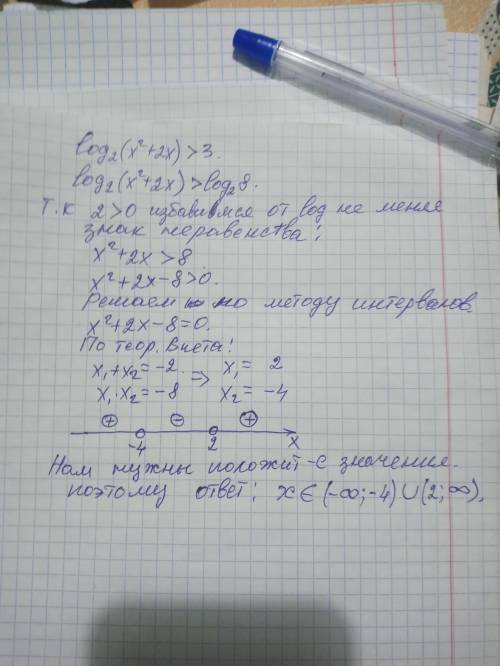 log₂(x²+2x)>3.
log₂(x²+2x)>log₂8.
Т.К 2>0 избавимся от log не меняя
знак неравенства:
x²+2x>8
x²+2x-8>0.
Решаем по методу интервалов.
x²+2x-8=0.
По теор. Виета:
x₁+x₂=-2. => x₁= 2
x₁·x₂=-8 x₂=-4
+ - +
-4 2 x
Нам нужны положит-е значения.
поэтому ответ: x∈(-∞;-4)∪(2;∞).